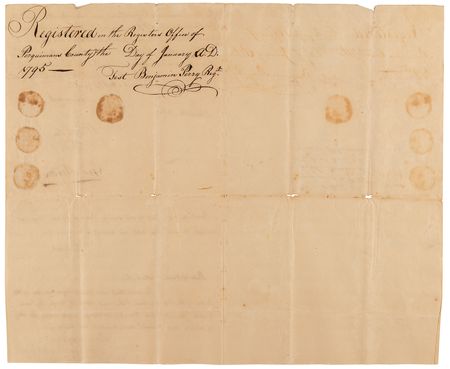 Registered in the Registers Office of
Perquimans County the Day of January A.D.
1795
Test Benjamin Perry Regr